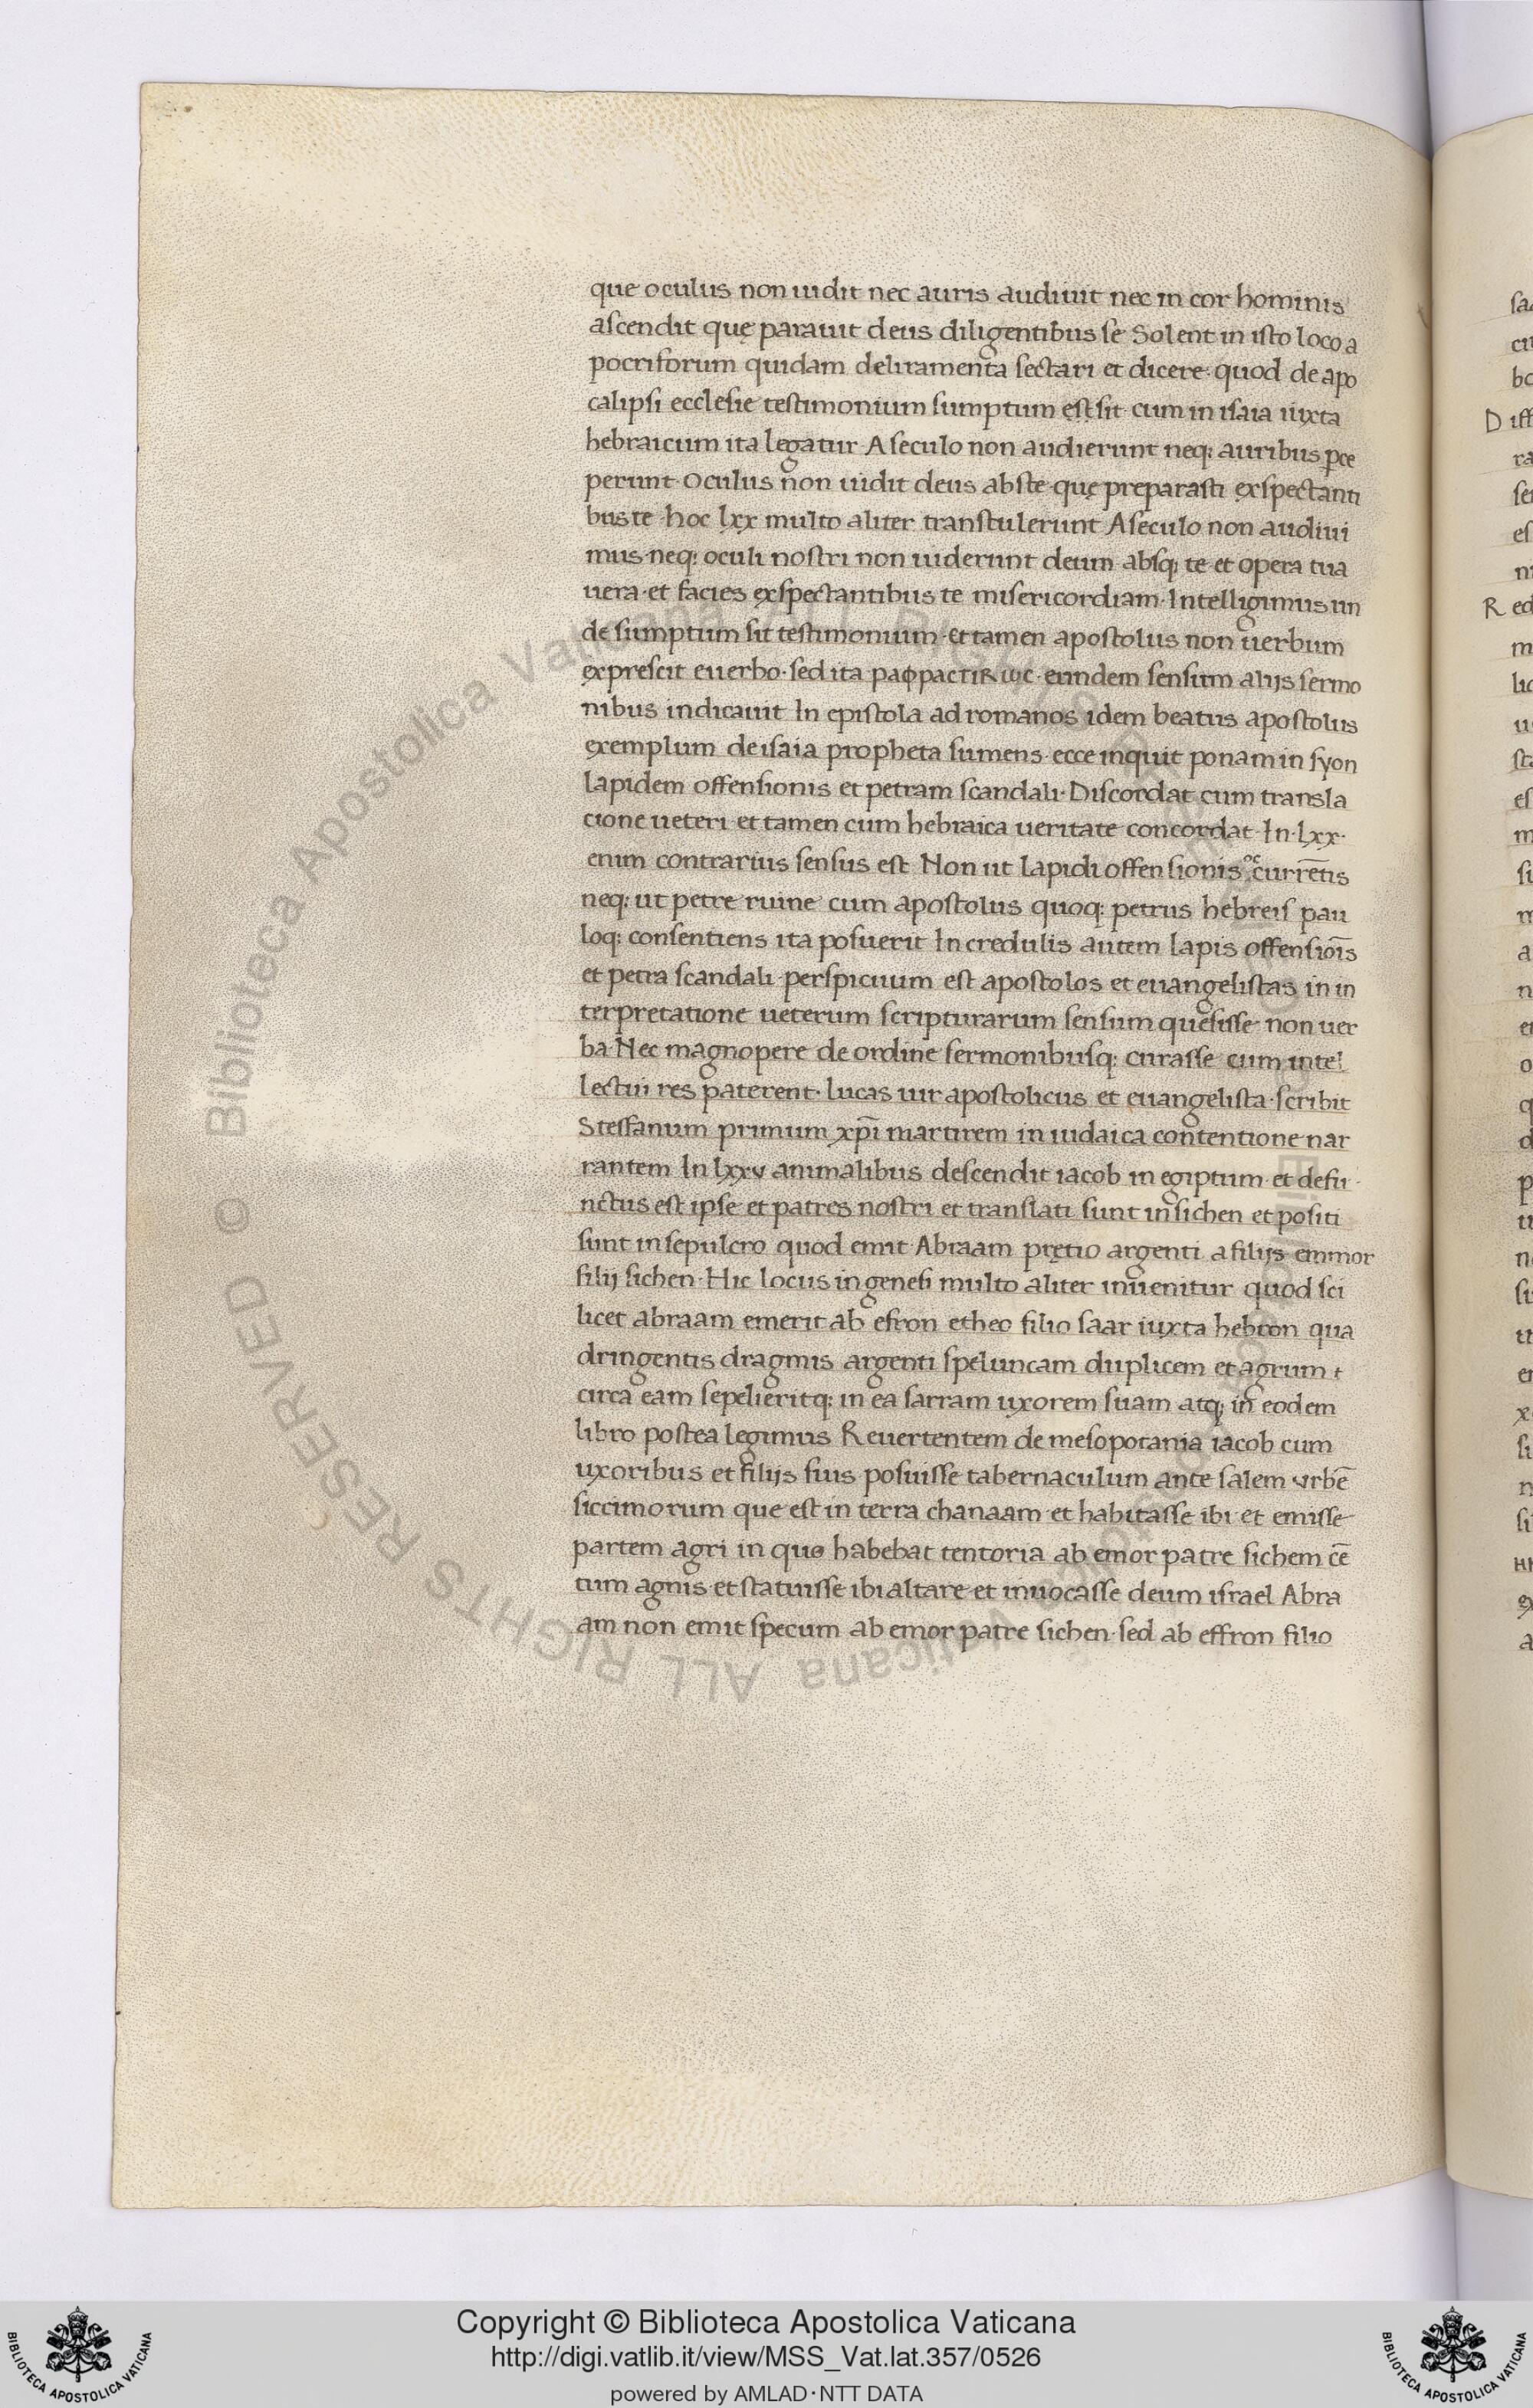 que oculus non uidit nec auris audiuit nec in cor hominis
ascendit quę parauit deus diligentibus se Solent in isto loco a
pocriforum quidam deliramenta sectari et dicere· quod de apo
calipsi ecclesie testimonium sumptum est sit cum in isaia iuxta
hebraicum ita legatur A seculo non audierunt neq; auribus ꝑce
perunt· Oculus non uidit deus abste· quę preparasti exspectanti
bus te· hoc lxx multo aliter transtulerunt A seculo non audiui
mus· neq; oculi nostri non uiderunt deum absq; te· et opera tua
uera· et facies exspectantibus te misericordiam· Intelligimus un
de sumptum sit testimonium· et tamen apostolus non uerbum
exprescit euerbo· sed ita paφpactiRωc· eundem sensum alijs sermo
nibus indicauit In epistola ad romanos idem beatus apostolus
exemplum de isaia propheta sumens· ecce inquit ponam in syon
lapidem offensionis et petram scandali· Discordat cum transla
cione ueteri et tamen cum hebraica ueritate concordat· In· lxx·
enim contrarius sensus est Non ut lapidi offensionis occurrētis
neq; ut petre ruine cum apostolus quoq; petrus hebreis pau
loq; consentiens ita posuerit In credulis autem lapis offensiōīs
et petra scandali· perspicuum est apostolos et euangelistas in in
terpretatione ueterum scripturarum sensum quesisse· non uer
ba· Nec magnopere de ordine sermonibusq; curasse cum intel
lectui res paterent· lucas uir apostolicus et euangelista· scribit
Steffanum primum xp̄i martirem in iudaica contentione nar
rantem In lxxv animalibus descendit iacob in egiptum· et defu
nctus est ipse et patres nostri et translati sunt in sichen et positi
sunt in sepulcro quod emit Abraam prętio argenti a filijs emmor
filij sichen· Hic locus in genesi multo aliter inuenitur quod sci
licet abraam emerit ab efron etheo filio saar iuxta hebron qua
dringentis dragmis argenti speluncam duplicem et agrum
circa eam sepelieritq; in ea sarram uxorem suam atq; in eodem
libro postea legimus Reuertentem de mesopotania iacob cum
uxoribus et filijs suis posuisse tabernaculum ante salem vrbē
siccimorum que est in terra chanaam et habitasse ibi et emisse
partem agri in quo habebat tentoria ab emor patre sichem cē
tum agnis· et statuisse ibi altare· et inuocasse deum israel Abra
am non emit specum ab emor patre sichen· sed ab effron filio
© Biblioteca Apostolica Vaticana
ALL RIGHTS RESERVED
Copyright © Biblioteca Apostolica Vaticana
http://digi.vatlib.it/view/MSS_Vat.lat.357/0526
powered by AMLAD·NTT DATA
BIBLIOTECA APOSTOLICA VATICANA
BIBLIOTECA APOSTOLICA VATICANA